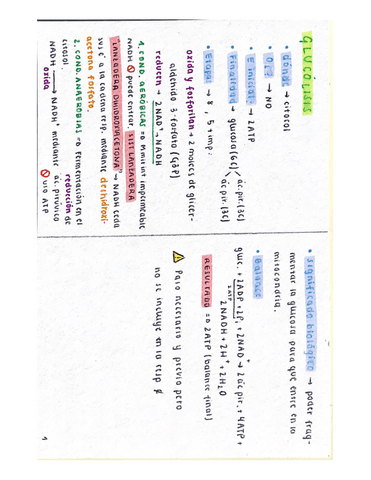 GLUCÓLISIS
• Dónde → citosol
• O₂? → NO
• E inicial → 2ATP
• Finalidad → glucosa (6C) ác.pir. (3C)
ác.pir. (3C)
• Etapas → 8, 5 + imp:
oxida y fosforilan → 2 molecs de glicer-
aldehído 3-fosfato (G3P)
reducen → 2NAD⁺ → NADH
1. COND. AERÓBICAS → Mmitint impermeable
NADH puede entrar, SIST LANZADERA
"LANZADERA DIHIDROXIACETONA" → NADH ceda
sus e⁻ a la cadena resp. mediante dehidroxi-
acetona fosfato.
2. COND. ANAEROBIAS → Fermentación en el
citosol. reducción de
NADH → NADH⁺ mediante ác. pirúvico
oxida uso ATP
• Significado biológico → poder frag-
mentar la glucosa para que entre en la
mitocondria.
• Balance
gluc. + 2ADP + 2Pi + 2NAD⁺ → 2ác.pir. + 4ATP +
2ATP
2NADH + 2H⁺ + 2H₂O
RESULTADO → 2ATP (balance final)
Paso necesario y previo pero
no se incluye en la resp
1